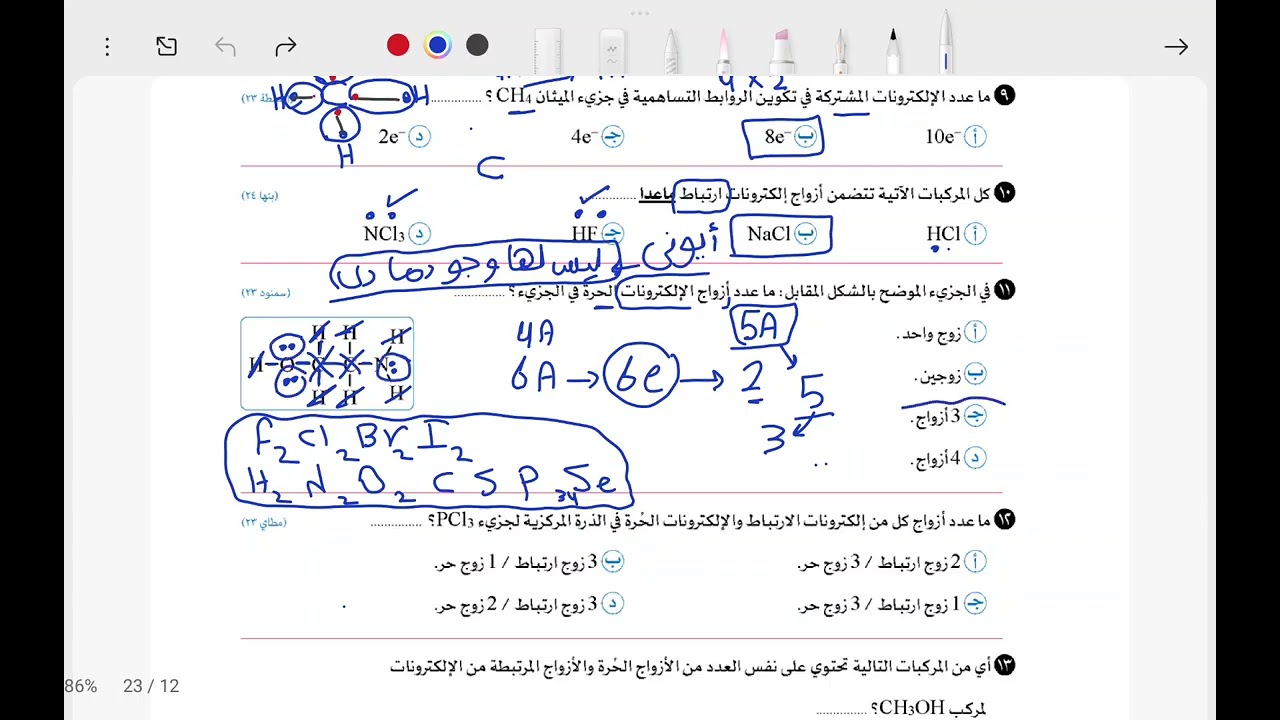 4 × 2
٩ ما عدد الإلكترونات المشتركة في تكوين الروابط التساهمية في جزيء الميثان CH4 ؟ ..............
H H
H
أ 10e⁻ ب 8e⁻ ج 4e⁻ د 2e⁻
C
١٠ كل المركبات الآتية تتضمن أزواج إلكترونات ارتباط ماعدا .............. (بنها ٢٤)
أ HCl ب NaCl ج HF د NCl3
أيونى ليس لها وجود
١١ في الجزيء الموضح بالشكل المقابل: ما عدد أزواج الإلكترونات الحرة في الجزيء؟ .............. (سمنود ٢٣)
H H H
H–O–C–C–N
H H H
أ زوج واحد.
ب زوجين.
ج 3 أزواج.
د 4 أزواج.
4A 5A
6A → 6e → 2 5
3
F2 Cl2 Br2 I2
H2 N2 O2 C S P 34Se
١٢ ما عدد أزواج كل من إلكترونات الارتباط والإلكترونات الحُرة في الذرة المركزية لجزيء PCl3؟ .............. (مطاي ٢٣)
أ 2 زوج ارتباط / 3 زوج حر. ب 3 زوج ارتباط / 1 زوج حر.
ج 1 زوج ارتباط / 3 زوج حر. د 3 زوج ارتباط / 2 زوج حر.
١٣ أي من المركبات التالية تحتوي على نفس العدد من الأزواج الحُرة والأزواج المرتبطة من الإلكترونات
لمركب CH3OH؟ ..............
86% 23 / 12